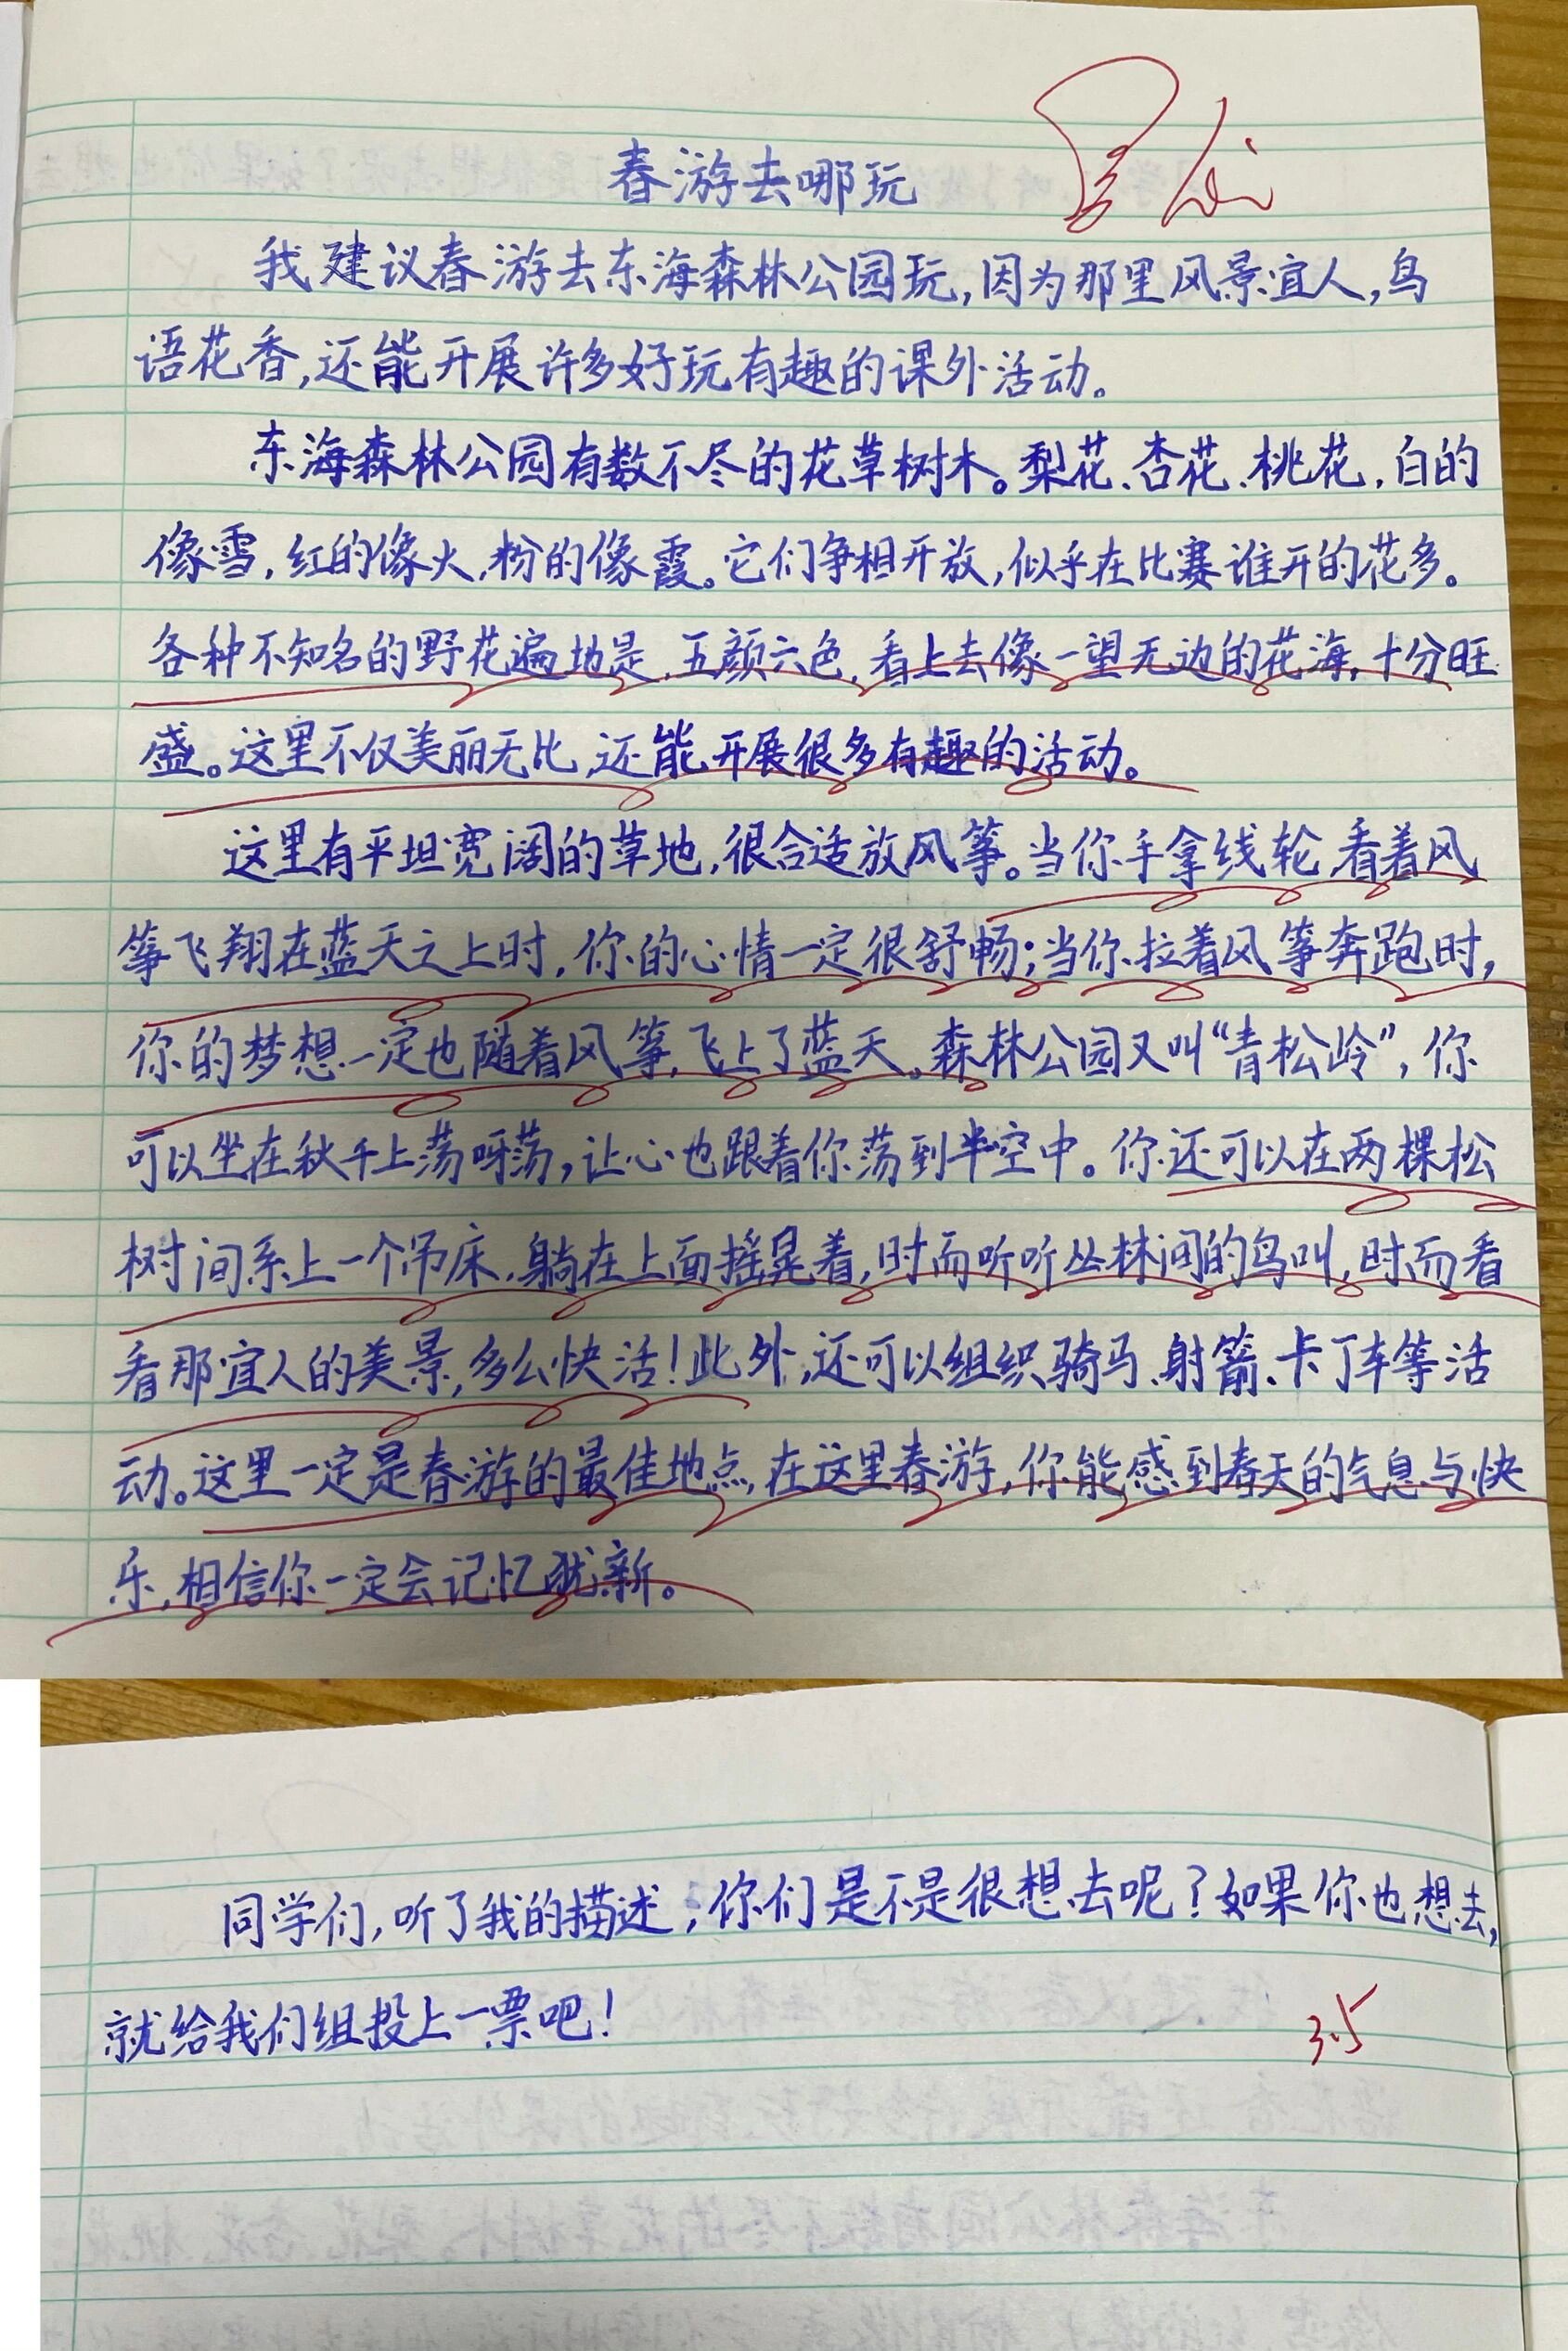 春游去哪玩
我建议春游去东海森林公园玩,因为那里风景宜人,鸟
语花香,还能开展许多好玩有趣的课外活动。
东海森林公园有数不尽的花草树木。梨花、杏花、桃花,白的
像雪,红的像火,粉的像霞。它们争相开放,似乎在比赛谁开的花多。
各种不知名的野花遍地是,五颜六色,看上去像一望无边的花海,十分旺
盛。这里不仅美丽无比,还能开展很多有趣的活动。
这里有平坦宽阔的草地,很合适放风筝。当你手拿线轮,看着风
筝飞翔在蓝天之上时,你的心情一定很舒畅;当你拉着风筝奔跑时,
你的梦想一定也随着风筝,飞上了蓝天。森林公园又叫“青松岭”,你
可以坐在秋千上荡呀荡,让心也跟着你荡到半空中。你还可以在两棵松
树间系上一个吊床,躺在上面摇晃着,时而听听丛林间的鸟叫,时而看
看那宜人的美景,多么快活!此外,还可以组织骑马、射箭、卡丁车等活
动。这里一定是春游的最佳地点,在这里春游,你能感到春天的气息与快
乐,相信你一定会记忆犹新。
同学们,听了我的描述,你们是不是很想去呢?如果你也想去,
就给我们组投上一票吧!
3.5